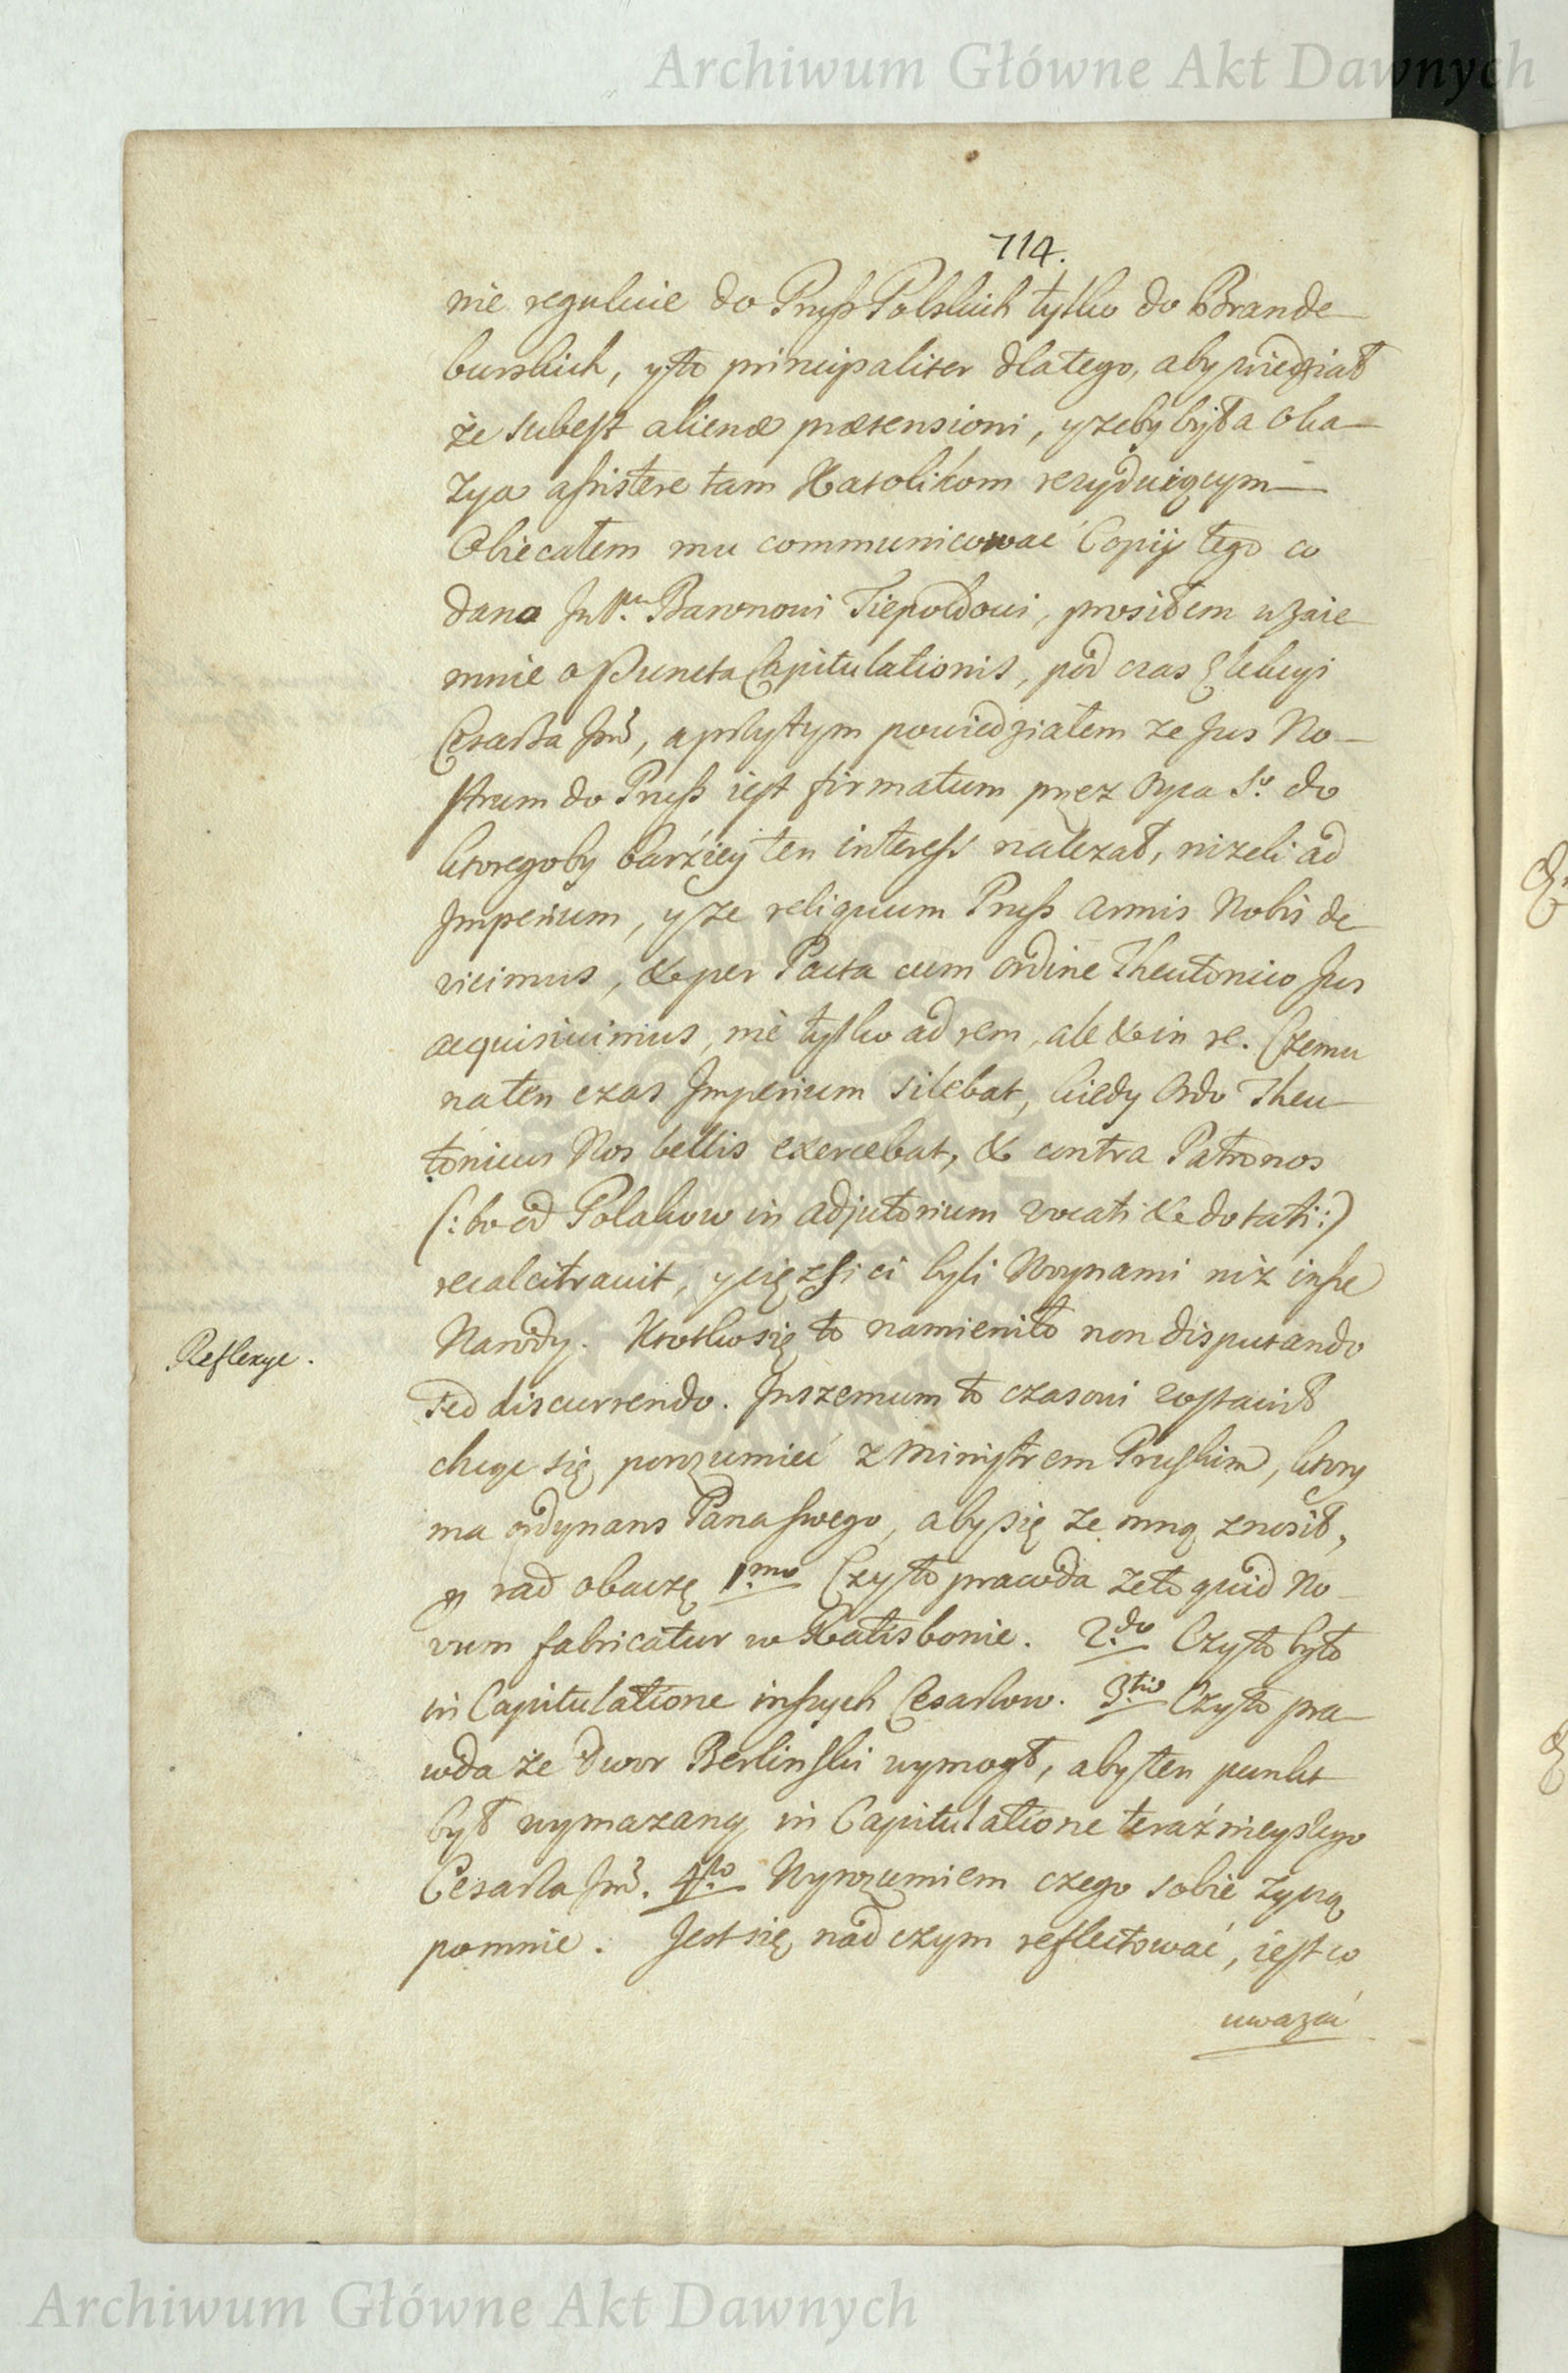 Archiwum Główne Akt Dawnych
714.
nie reguluie do Pruß Polskich tylko do Brande-
burskich, y to principaliter dlatego, aby wiedział
że subest alienæ prætensioni, y żeby była oka-
zya assistere tam Katolikom rezyduiącym
Obiecałem mu communicować Copij tego co
dano Baronowi Tiepoldowi, prosiłem wzaie-
mnie o Puncta Capitulationis, pod czas Elekcyi
Cesarza Jmći, a przytym powiedziałem ze Jus No-
strum do Pruß iest firmatum przez Oyca Sº do
ktoregoby barźiey ten interess nalezał, nizeli ad
Imperium, y ze reliquum Pruß armis Nobis de
vicimus, & per Pacta cum Ordine Theutonico Jus
acquisiuimus, nie tylko ad rem, ale & in re. Czemu
na ten czas Imperium silebat, kiedy Ordo Theu-
tonicus Nos bellis exercebat, & contra Patronos
(: bo od Polakow in adjutorium vocati & dotati :)
recalcitrauit, y cięzsi ci byli Woynami niż insze
Narody. Krotko się to namieniło non disputando
Reflexye.
sed discurrendo. Inszemum to czasowi zostawił
chcąc się porozumieć z Ministrem Pruskim, ktory
ma ordynans Pana swego, aby się ze mną znosił,
y rad obaczę 1.mo Czy to prawda ze to quid No-
vum fabricatur w Ratisbonie. 2.do Czy to było
in Capitulatione inszych Cesarzow. 3.tio Czy to pra-
wda że Dwor Berlinski wymogł, aby ten punkt
był wymazany in Capitulatione teraźnieyszego
Cesarza Jmći. 4.to Wyrozumiem czego sobie zyczą
pomnie. Jest się nad czym reflectować, iest co
uwazać
Archiwum Główne Akt Dawnych